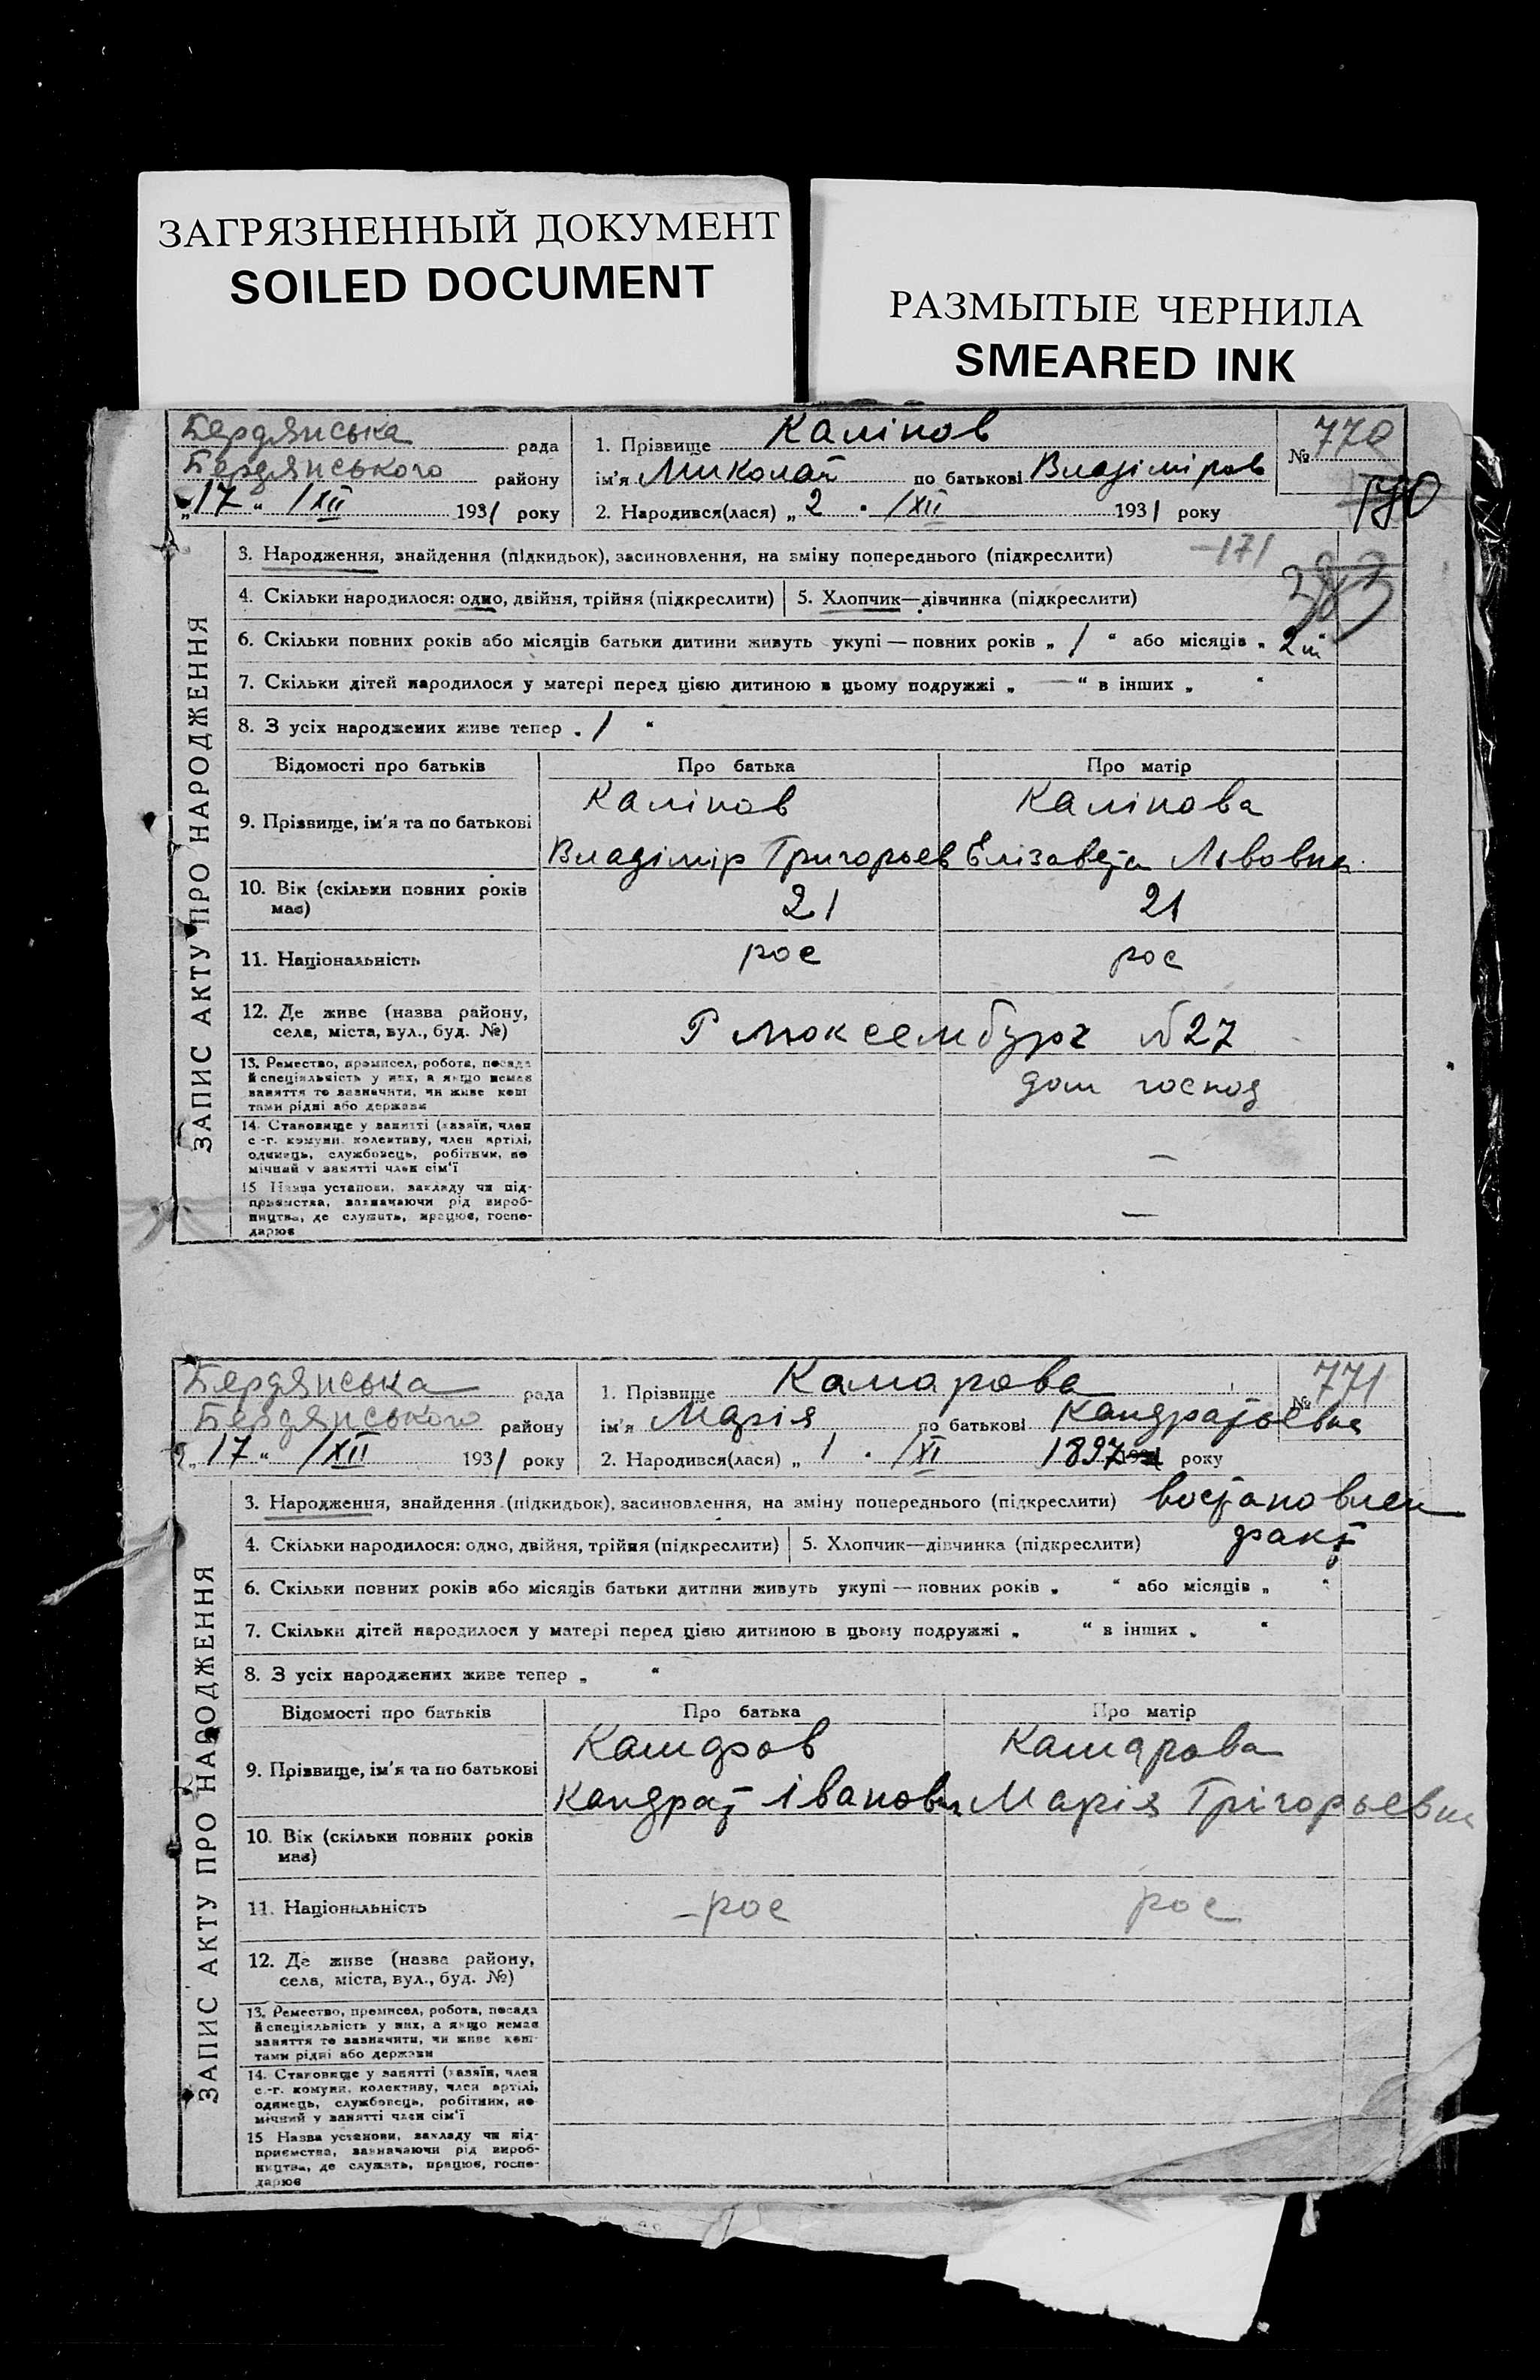 ЗАГРЯЗНЕННЫЙ ДОКУМЕНТ
SOILED DOCUMENT
РАЗМЫТЫЕ ЧЕРНИЛА
SMEARED INK
Бердянська рада
Бердянського району
„17“ /XII 1931 року
1. Прізвище Калінов
ім'я Миколай по батькові Владіміров
2. Народився(лася) „2 . /XII 1931 року
№ 770
170
3. Народження, знайдення (підкидьок), засиновлення, на зміну попереднього (підкреслити) —171
4. Скільки народилося: одно, двійня, трійня (підкреслити) 5. Хлопчик—дівчинка (підкреслити)
6. Скільки повних років або місяців батьки дитини живуть укупі — повних років „ 1 “ або місяців „ 2 м
7. Скільки дітей народилося у матері перед цією дитиною в цьому подружжі „ — “ в інших „ “
8. З усіх народжених живе тепер „ 1 “
ЗАПИС АКТУ ПРО НАРОДЖЕННЯ
Відомості про батьків Про батька Про матір
9. Прізвище, ім'я та по батькові
Калінов Калінова
Владімір Григорьев Елізавета Львовна
10. Вік (скільки повних років має) 21 21
11. Національність рос рос
12. Де живе (назва району, села, міста, вул., буд. №) Р Люксембург №27
13. Ремество, промисел, робота, посада
й спеціяльність у них, а якщо немає
заняття то зазначити, чи живе кош
тами рідні або держави
дом господ
14. Становище у занятті (хазяїн, член
с.-г. комуни, колективу, член артілі,
одинець, службовець, робітник, по
мічний у занятті член сім'ї
—
15 Назва установи, закладу чи під-
приємства, зазначаючи рід вироб-
ництва, де служить, працює, госпо-
дарює
—
Бердянська рада
Бердянського району
„17“ /XII 1931 року
1. Прізвище Камарова
ім'я Марія по батькові Кандратьевна
2. Народився(лася) „1 . /XI 1897 року
№ 771
3. Народження, знайдення (підкидьок), засиновлення, на зміну попереднього (підкреслити) востановлен
4. Скільки народилося: одно, двійня, трійня (підкреслити) 5. Хлопчик—дівчинка (підкреслити) факт
6. Скільки повних років або місяців батьки дитини живуть укупі — повних років „ “ або місяців „ “
7. Скільки дітей народилося у матері перед цією дитиною в цьому подружжі „ “ в інших „ “
8. З усіх народжених живе тепер „ “
ЗАПИС АКТУ ПРО НАРОДЖЕННЯ
Відомості про батьків Про батька Про матір
9. Прізвище, ім'я та по батькові
Камаров Камарова
Кандрат Іванович Марія Грігорьевна
10. Вік (скільки повних років має)
11. Національність —рос рос
12. Де живе (назва району, села, міста, вул., буд. №)
13. Ремество, промисел, робота, посада
й спеціяльність у них, а якщо немає
заняття то зазначити, чи живе кош-
тами рідні або держави
14. Становище у занятті (хазяїн, член
с.-г. комуни, колективу, член артілі,
одинець, службовець, робітник, по
мічний у занятті член сім'ї
15 Назва установи, закладу чи під-
приємства, зазначаючи рід вироб-
ництва, де служить, працює, госпо-
дарює